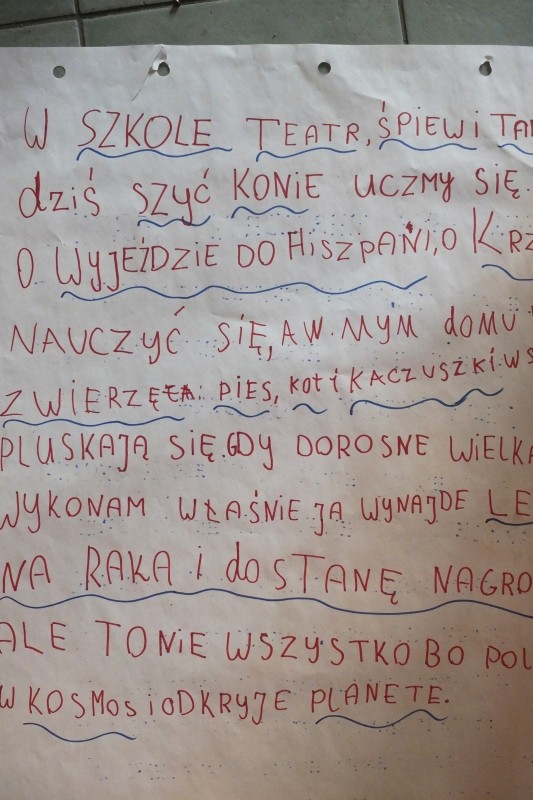 W SZKOLE TEATR, ŚPIEW i TAN
dziś SZYĆ KONIE UCZMY SIĘ.
O WYJEŹDZIE DO HiSZPANi, O KRZ
NAUCZYĆ SIĘ, A W MYM dOMU
ZWIERZĘTA: PIES, KOT i KACZUSZKI WS
PLUSKAJĄ SIĘ. GDY DOROSNE WIELKA
WYKONAM WŁAŚNIE JA WYNAJDE LE
NA RAKA i doSTANĘ NAGRO
ALE TO NiE WSZYSTKO BO POL
W KOSMOS i ODKRYJE PLANETE.